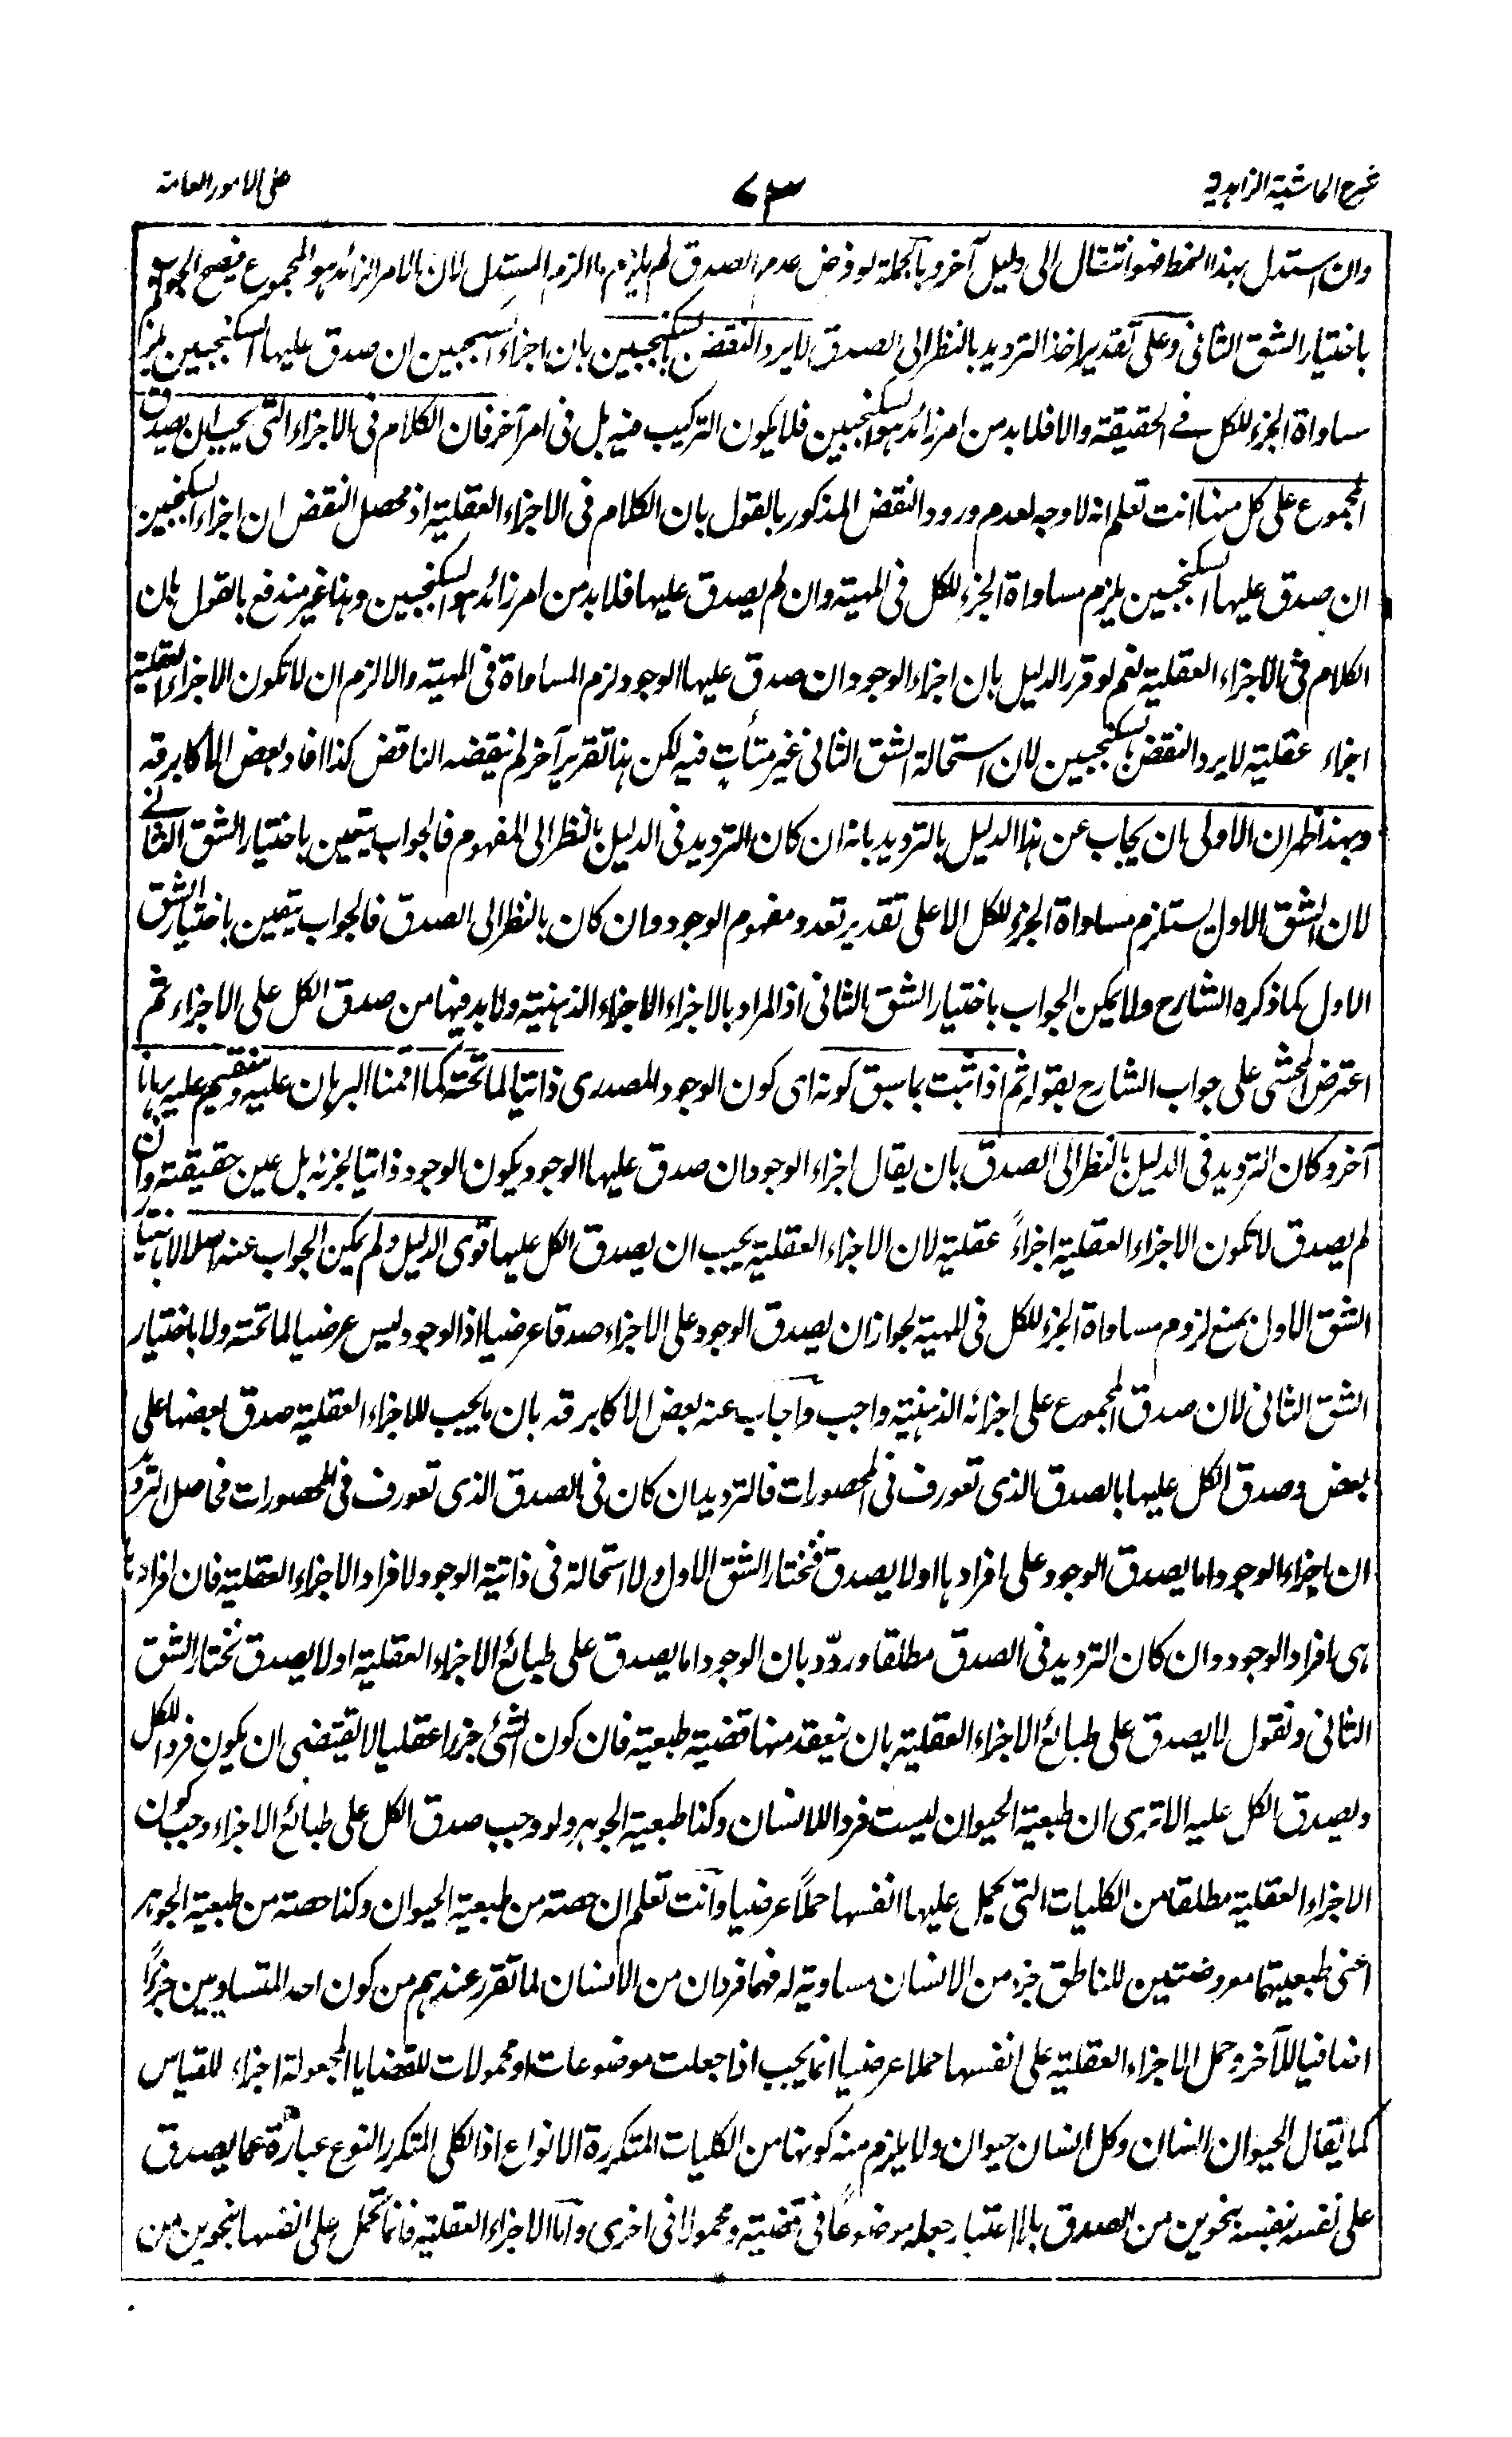 شرح الحاشية الزاهدية
٧٣
على الامور العامة
وان استدل بهذا النمط فهو انتقال الى دليل آخر وبالجملة لو فرض عدم الصدق لم يلزم ما الزم المستدل لان الامر الزائد هو المجموع فيصح الجواب
باختيار الشق الثانى وعلى تقدير اخذ الترديد بالنظر الى الصدق لا يرد النقض بالسكنجبين بان اجزاء السكنجبين ان صدق عليها السكنجبين لزم
مساواة الجزء للكل فے الحقيقة والا فلا بد من امر زائد هو السكنجبين فلا يكون التركيب فيه بل فى امر آخر فان الكلام فى الاجزاء التى يجب ان يصدق
المجموع على كل منها انت تعلم انه لا وجه لعدم ورود النقض المذكور بالقول بان الكلام فى الاجزاء العقلية اذ محصل النقض ان اجزاء السكنجبين
ان صدق عليها السكنجبين يلزم مساواة الجزء للكل فى المهية وان لم يصدق عليها فلا بد من امر زائد هو السكنجبين وهذا غير مندفع بالقول بان
الكلام فى الاجزاء العقلية نعم لو قرر الدليل بان اجزاء الوجود ان صدق عليها الوجود لزم المساواة فى المهية والا لزم ان لا تكون الاجزاء العقلية
اجزاء عقلية لا يرد النقض بالسكنجبين لان استحالة الشق الثانى غير متأت فيه لكن هذا تقرير آخر لم ينقضه الناقض كذا افاد بعض الاكابر قه
وبهذا ظهر ان الاولى بان يجاب عن هذا الدليل بالترديد بانه ان كان الترديد فى الدليل بالنظر الى المفهوم فالجواب يتعين باختيار الشق الثانے
لان الشق الاول يستلزم مساواة الجزء للكل الا على تقدير تعدد مفهوم الوجود وان كان بالنظر الى الصدق فالجواب يتعين باختيار الشق
الاول كما ذكره الشارح ولا يمكن الجواب باختيار الشق الثانى اذ المراد بالاجزاء الاجزاء الذهنية ولا بد فيها من صدق الكل على الاجزاء ثم
اعترض المحشى على جواب الشارح بقوله ثم اذا ثبت بما سبق كونه اى كون الوجود المصدرى ذاتيا لما تحته كما اقمنا البرهان عليه وسنقيم عليه برهانا
آخر وكان الترديد فى الدليل بالنظر الى الصدق بان يقال اجزاء الوجود ان صدق عليها الوجود يكون الوجود ذاتيا لجزئه بل عين حقيقته وان
لم يصدق لا تكون الاجزاء العقلية اجزاءً عقلية لان الاجزاء العقلية يجب ان يصدق الكل عليها قوى الدليل ولم يمكن الجواب عنه اصلا لا باختيار
الشق الاول بمنع لزوم مساواة الجزء للكل فى المهية لجواز ان يصدق الوجود على الاجزاء صدقا عرضيا اذ الوجود ليس عرضيا لما تحته ولا باختيار
الشق الثانى لان صدق المجموع على اجزائه الذهنية واجب واجاب عنه بعض الاكابر قه بان ما يجب للاجزاء العقلية صدق بعضها على
بعض وصدق الكل عليها بالصدق الذى تعورف فى المحصورات فالترديد ان كان فى الصدق الذى تعورف فى المحصورات فحاصل الترديد
ان اجزاء الوجود اما يصدق الوجود على افرادها او لا يصدق فنختار الشق الاول ولا استحالة فى ذاتية الوجود لافراد الاجزاء العقلية فان افرادها
هى افراد الوجود وان كان الترديد فى الصدق مطلقا وردّد بان الوجود اما يصدق على طبائع الاجزاء العقلية او لا يصدق نختار الشق
الثانى ونقول لا يصدق على طبائع الاجزاء العقلية بان ينعقد منها قضية طبعية فان كون الشئ جزءا عقليا لا يقتضى ان يكون فردا للكل
ويصدق الكل عليه الا ترى ان طبعية الحيوان ليست فردا للانسان وكذا طبعية الجوهر ولو وجب صدق الكل على طبائع الاجزاء وجب كون
الاجزاء العقلية مطلقا من الكليات التى يحمل عليها انفسها حملاً عرضيا وانت تعلم ان حصته من طبعية الحيوان وكذا حصته من طبعية الجوهر
اعنى طبعيتهما معروضتين للناطق جزء من الانسان مساوية له فهما فردان من الانسان لما تقرر عندهم من كون احد المتساويين جزءاً
اضافيا للآخر وحمل الاجزاء العقلية على انفسها حملا عرضيا انما يجب اذا جعلت موضوعات او محمولات للقضايا المجعولة اجزاء للقياس
كما يقال الحيوان انسان وكل انسان حيوان ولا يلزم منه كونها من الكليات المتكررة الانواع اذ الكلى المتكرر النوع عبارة عما يصدق
على نفسه بنفسه بنحوين من الصدق بلا اعتبار جعله موضوعاً فى قضية ومحمولا فى اخرى واما الاجزاء العقلية فانما تحمل على انفسها بنحوين من